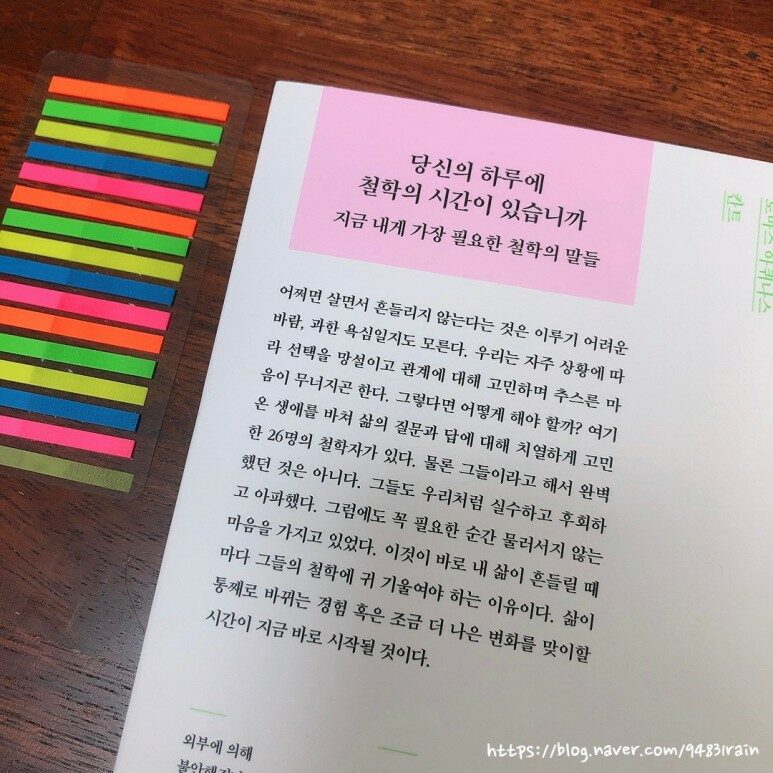 당신의 하루에
철학의 시간이 있습니까
지금 내게 가장 필요한 철학의 말들
어쩌면 살면서 흔들리지 않는다는 것은 이루기 어려운
바람, 과한 욕심일지도 모른다. 우리는 자주 상황에 따
라 선택을 망설이고 관계에 대해 고민하며 추스른 마
음이 무너지곤 한다. 그렇다면 어떻게 해야 할까? 여기
온 생애를 바쳐 삶의 질문과 답에 대해 치열하게 고민
한 26명의 철학자가 있다. 물론 그들이라고 해서 완벽
했던 것은 아니다. 그들도 우리처럼 실수하고 후회하
고 아파했다. 그럼에도 꼭 필요한 순간 물러서지 않는
마음을 가지고 있었다. 이것이 바로 내 삶이 흔들릴 때
마다 그들의 철학에 귀 기울여야 하는 이유이다. 삶이
통째로 바뀌는 경험 혹은 조금 더 나은 변화를 맞이할
시간이 지금 바로 시작될 것이다.
외부에 의해
칸트
https://blog.naver.com/9483lrain